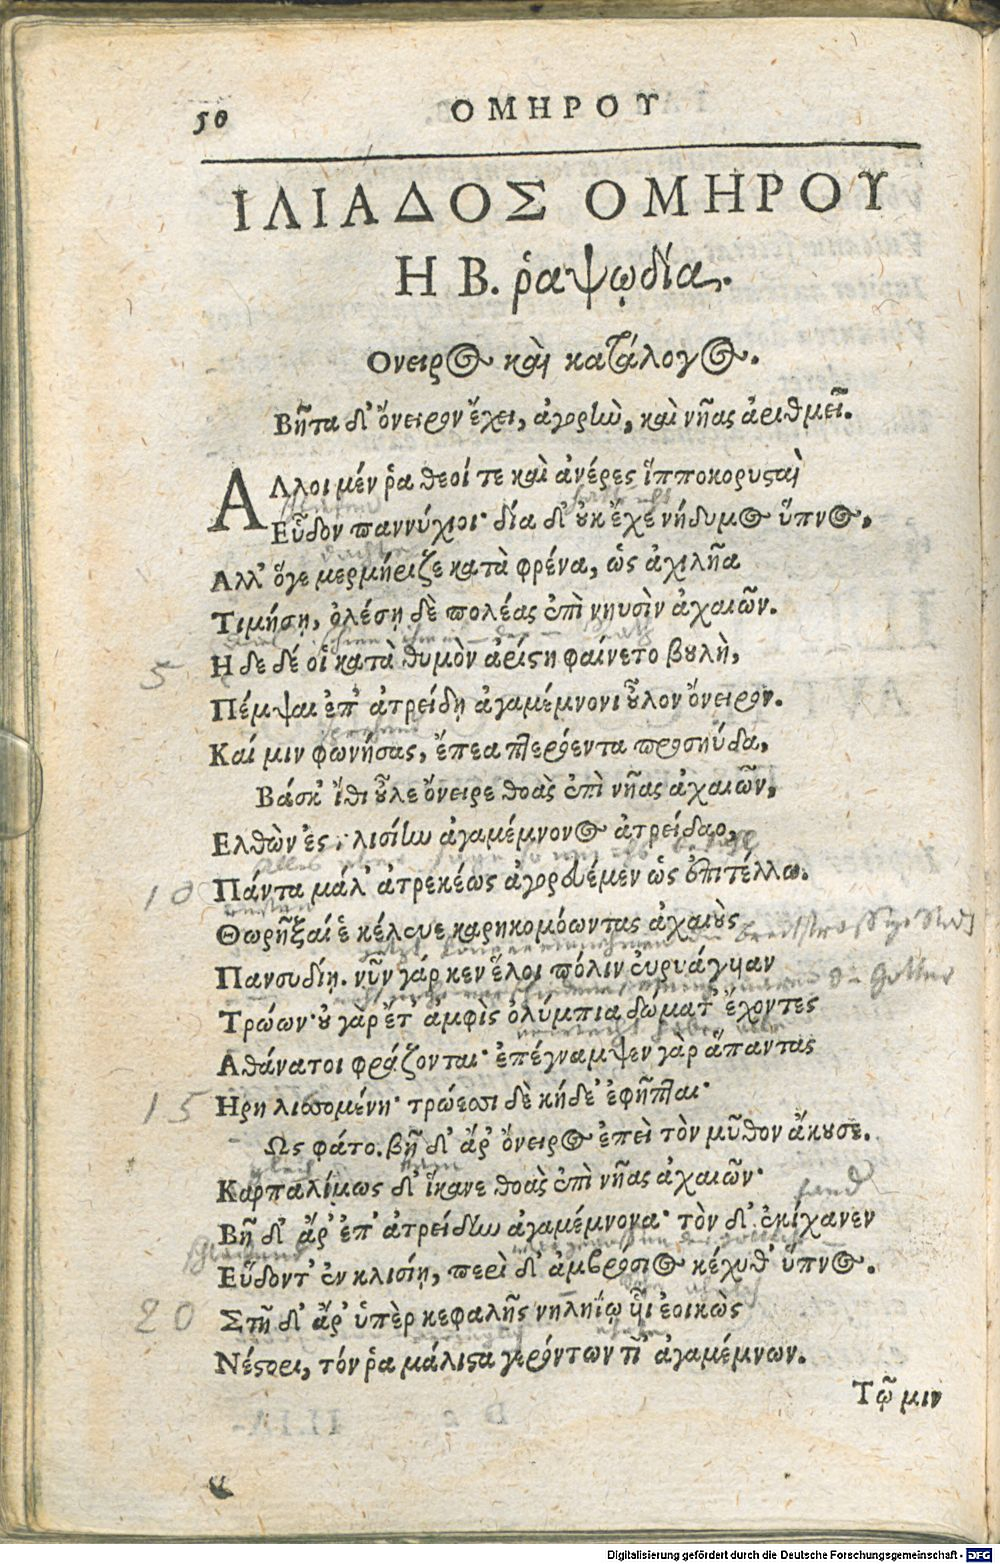 50
ΟΜΗΡΟΥ
ΙΛΙΑΔΟΣ ΟΜΗΡΟΥ
Η Β. ῥαψῳδία.
Ονειρος καὶ κατάλογος.
Βῆτα δ' ὄνειρον ἔχει, ἀγορὴν, καὶ νῆας ἀριθμεῖ.
ΑΛλοι μέν ῥα θεοί τε καὶ ἀνέρες ἵπποκορυσταὶ
Εὗδον παννύχιοι· δία δ' οὐκ ἔχε νήδυμος ὕπνος,
Αλλ' ὅγε μερμήριζε κατὰ φρένα, ὡς ἀχιλῆα
Τιμήσῃ, ὀλέσῃ δὲ πολέας ἐπὶ νηυσὶν ἀχαιῶν.
5 Η δε δέ οἱ κατὰ θυμὸν ἀρίστη φαίνετο βουλὴ,
Πέμψαι ἐπ' ἀτρείδῃ ἀγαμέμνονι οὖλον ὄνειρον.
Καί μιν φωνήσας, ἔπεα πτερόεντα προσηύδα,
Βάσκ' ἴθι οὖλε ὄνειρε θοὰς ἐπὶ νῆας ἀχαιῶν,
Ελθὼν ἐς κλισίην ἀγαμέμνονος ἀτρείδαο,
10 Πάντα μάλ' ἀτρεκέως ἀγορευέμεν ὡς ἐπιτέλλω.
Θωρῆξαί ἑ κέλευε καρηκομόωντας ἀχαιοὺς
Πανσυδίῃ. νῦν γάρ κεν ἕλοι πόλιν εὐρυάγυιαν
Τρώων· οὐ γὰρ ἔτ' ἀμφὶς ὀλύμπια δώματ' ἔχοντες
Αθάνατοι φράζονται· ἐπέγναμψεν γὰρ ἅπαντας
15 Ηρη λισσομένη· τρώεσσι δὲ κήδε' ἐφῆπται·
Ως φάτο. βῆ δ' ἄρ' ὄνειρος ἐπεὶ τὸν μῦθον ἄκουσε.
Καρπαλίμως δ' ἵκανε θοὰς ἐπὶ νῆας ἀχαιῶν·
fand
Βῆ δ' ἄρ' ἐπ' ἀτρείδην ἀγαμέμνονα· τὸν δ' ἐκίχανεν
Εὕδοντ' ἐν κλισίῃ, περὶ δ' ἀμβρόσιος κέχυθ' ὕπνος.
20 Στῆ δ' ἄρ' ὑπὲρ κεφαλῆς νηληΐῳ υἷι ἐοικὼς
Νέστορι, τόν ῥα μάλιστα γερόντων τῖ' ἀγαμέμνων.
Τῷ μιν
Digitalisierung gefördert durch die Deutsche Forschungsgemeinschaft - DFG